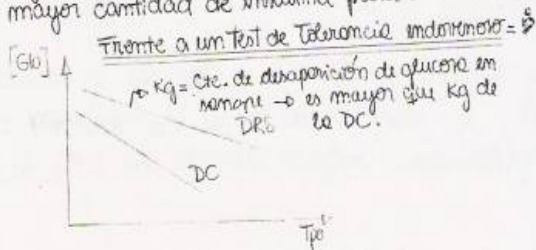 mayor cantidad de insulina
Frente a un Test de Tolerancia endovenoso =
[Glu]
Kg = Cte. de desaparición de glucosa en
sangre → es mayor que Kg de
DRE la DC.
DC
Tpo